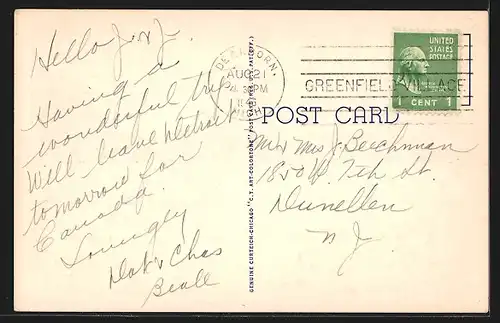 Hello J & J.
Having a
wonderful trip
Will leave Detroit
tomorrow for
Canada.
Lovingly
Dot & Chas
Beall
DEARBORN,
AUG 21
PM
MICH
GREENFIELD VILLAGE
UNITED
STATES
POSTAGE
1 CENT 1
POST CARD
Mr & Mrs J. Beechman
1850 W. 7th St.
Dunellen
N J
GENUINE CURTEICH-CHICAGO "C.T. ART-COLORTONE" POST CARD (REG. U.S. PAT. OFF.)